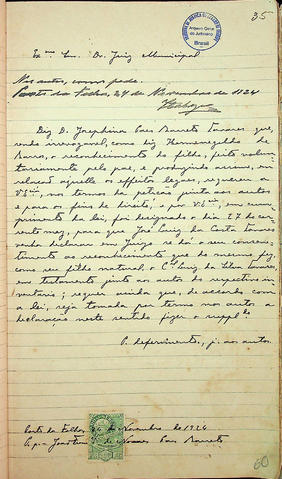 35
Arquivo Geral
do Judiciário
Brasil
Exmo Snr. Dr. Juiz Municipal
Nos autos, como pede.
Porto da Folha, 24 de Novembro de 1924
Diz D. Josephina Paes Barreto Tavares que,
sendo irrevogavel, como diz Hermenegildo de
Barros, o reconhecimento do filho, feito volun-
tariamente pelo pae, e produzindo assim em
relação áquelle os effeitos legaes, requereu a
V. Sia, nos termos da petição junta aos autos
e para os fins de direito, e por V. Sia, em cum-
primento da lei, foi designado o dia 27 do cor-
rente mez, para que José Luiz da Costa Tavares
venha declarar em Juizo se dá o seu consen-
timento ao reconhecimento que do mesmo fez,
como seu filho natural, o Cel Luiz da Silva Tavares,
em testamento junto aos autos do respectivo in-
ventario; requer ainda que, de accordo com
a lei, seja tomada por termo nos autos a
declaração neste sentido fizer o suppdo
P. deferimento, j. aos autos.
Porto da Folha, 24 de Novembro de 1924
P. p. Paes Barreto
60